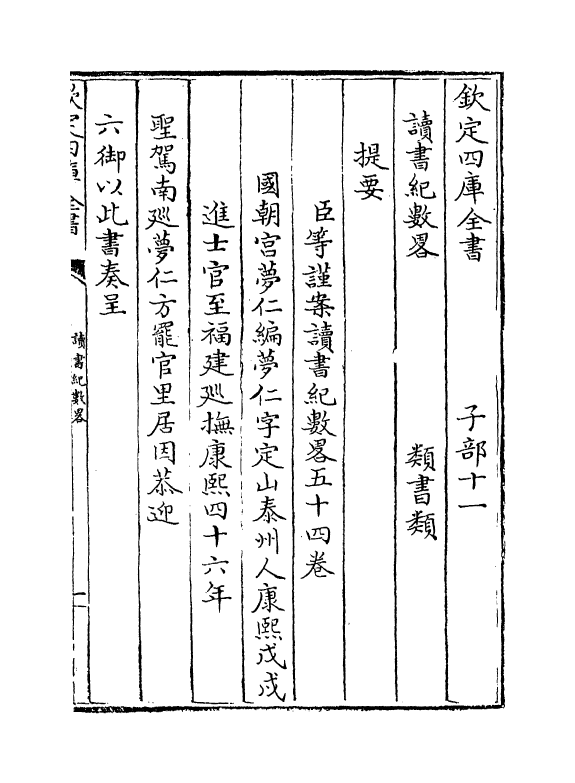 欽定四庫全書　子部十一
讀書紀數畧　類書類
提要
臣等謹案讀書紀數畧五十四卷
國朝宫夢仁編夢仁字定山泰州人康熙戊戌
進士官至福建廵撫康熙四十六年
聖駕南廵夢仁方罷官里居因恭迎
六御以此書奏呈
欽定四庫全書　讀書紀數畧　一